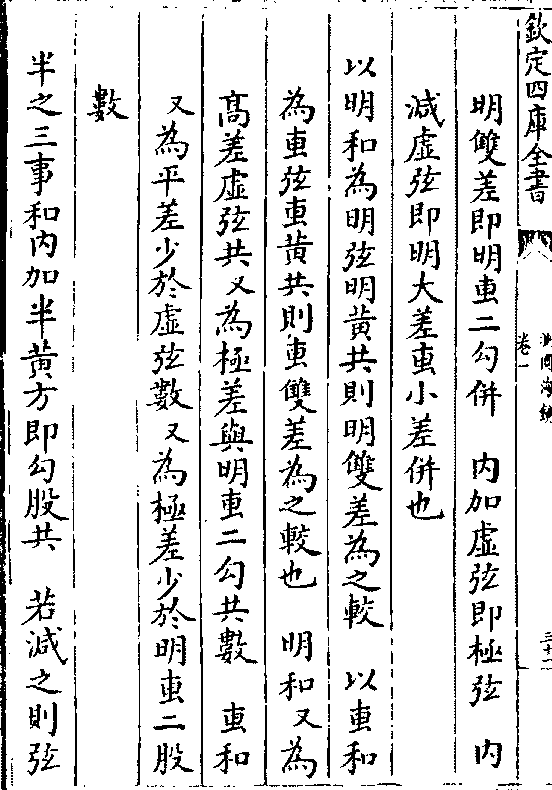 欽定四庫全書
卷一
明雙差即明叀二勾併　内加虚弦即極弦　内
減虚弦即明大差叀小差併也
以明和為明弦明黄共則明雙差為之較　以叀和
為叀弦叀黄共則叀雙差為之較也　明和又為
髙差虚弦共又為極差與明叀二勾共數　叀和
又為平差少於虚弦數又為極差少於明叀二股
數
半之三事和内加半黄方即勾股共　若減之則弦